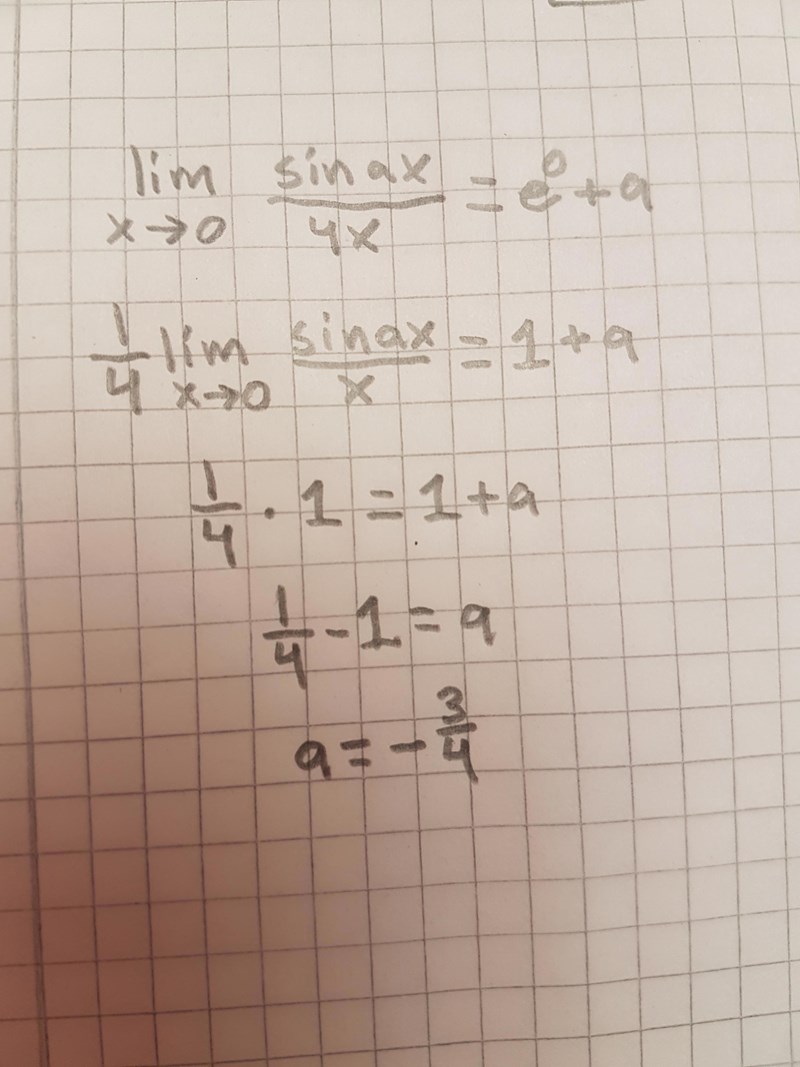 lim x→0 sin ax / 4x = e⁰ + a
1/4 lim x→0 sin ax / x = 1 + a
1/4 · 1 = 1 + a
1/4 - 1 = a
a = - 3/4